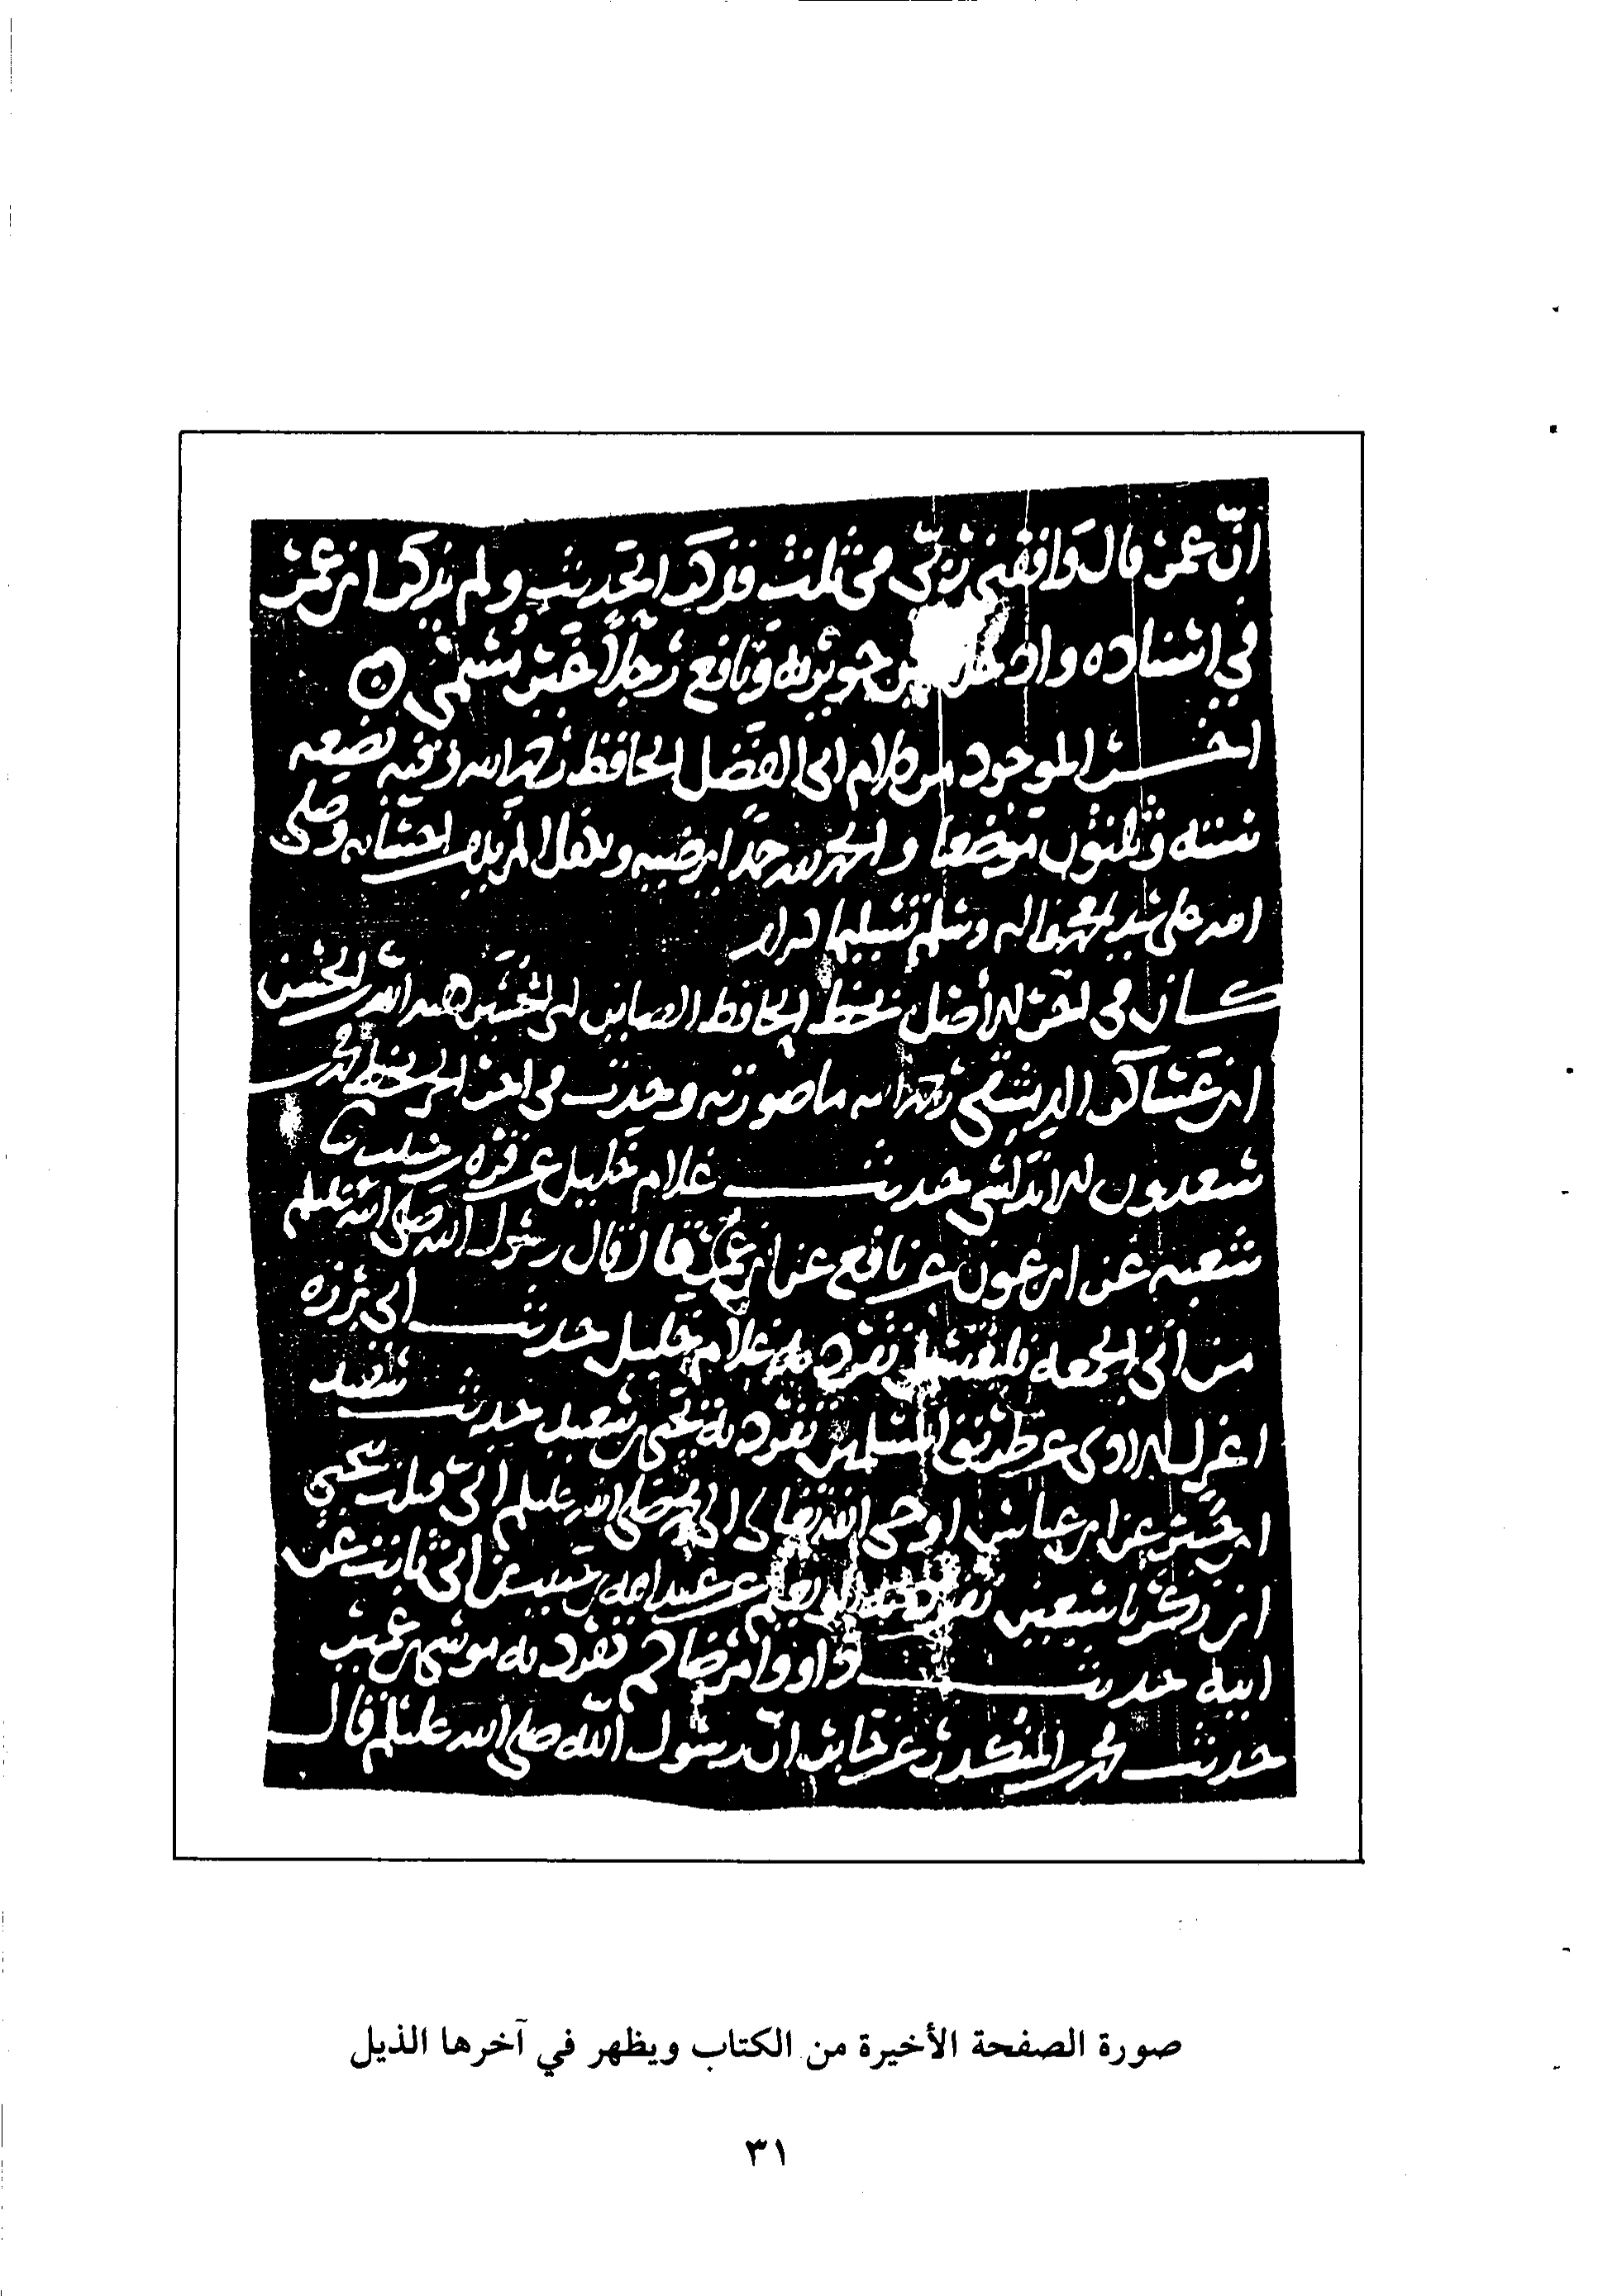 ان عمر قال وافقني ربي في ثلث فذكر الحديث ولم يذكر ابن عمر
في اسناده وادخل بين جويرية ونافع رجلا غير مسمى
اخر الموجود من كلام ابي الفضل الحافظ رحمه الله وفيه بضعه
ستة وثلثون موضعا والحمد لله حمدا يرضيه وصلى
الله على سيدنا محمد واله وسلم تسليما
كان في اخر الأصل بخط الحافظ الصاين ابي الحسين هبة الله بن الحسن
ابن عساكر الدمشقي رحمه الله ما صورته وجدت في اخر الجزء بخط
سعدون الاندلسي حديث غلام خليل عن قرة بن حبيب نا
شعبة عن ابن عون عن نافع عن ابن عمر قال قال رسول الله صلى الله عليه وسلم
من اتى الجمعة فليغتسل تفرد به غلام خليل حديث ابي برزة
اعزل الاذى عن طريق المسلمين تفرد به يحيى بن سعيد حديث سعيد
ابن جبير عن ابن عباس اوحى الله تعالى الى محمد صلى الله عليه وسلم اني قتلت بيحيى
ابن زكريا سبعين تفرد به ابو نعيم عن عبد الله بن حبيب بن ابي ثابت عن
ابيه حديث تفرد به موسى بن عمير
حديث محمد بن المنكدر عن جابر ان رسول الله صلى الله عليه وسلم قال
صورة الصفحة الأخيرة من الكتاب ويظهر في آخرها الذيل
٣١